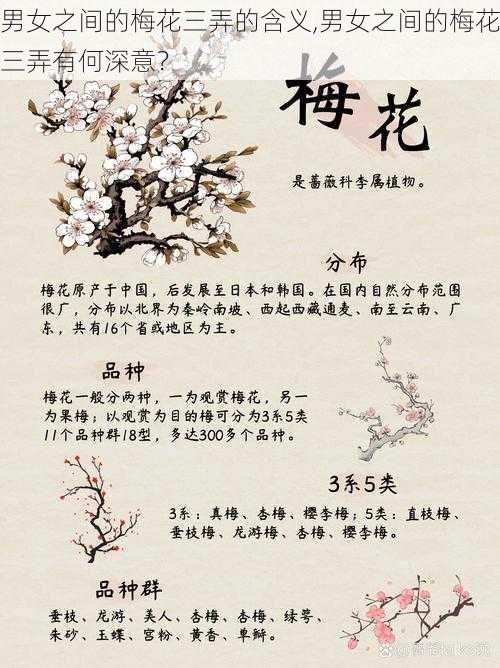 男女之间的梅花三弄的含义,男女之间的梅花
三弄有何深意?
梅花
是蔷薇科李属植物。
分布
梅花原产于中国，后发展至日本和韩国。在国内自然分布范围
很广，分布以北界为秦岭南坡、西起西藏通麦、南至云南、广
东，共有16个省或地区为主。
品种
梅花一般分两种，一为观赏梅花，另一
为果梅；以观赏为目的梅可分为3系5类
11个品种群18型，多达300多个品种。
3系5类
3系：真梅、杏梅、樱李梅；5类：直枝梅、
垂枝梅、龙游梅、杏梅、樱李梅。
品种群
垂枝、龙游、美人、杏梅、杏梅、绿萼、
朱砂、玉蝶、宫粉、黄香、单瓣。